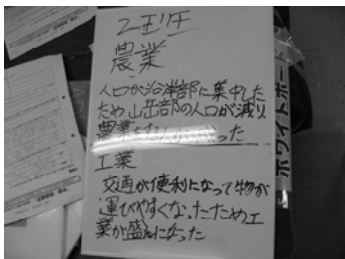 2班
農業
人口が沿岸部に集中した
ため山岳部の人口が減り
農業をする人が減った
工業
交通が便利になって物が
運びやすくなったため工
業が盛んになった
ホワイトボー